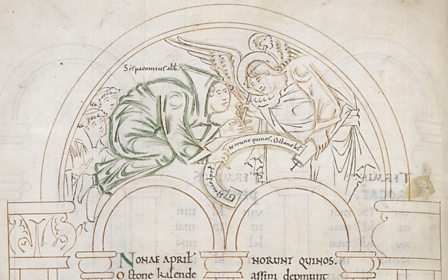 Scs pacomius abb.
Norunt quinos. Octone kł
NONAE APRIL'
NORUNT QUINOS.
Octone kalende
assim depmunt